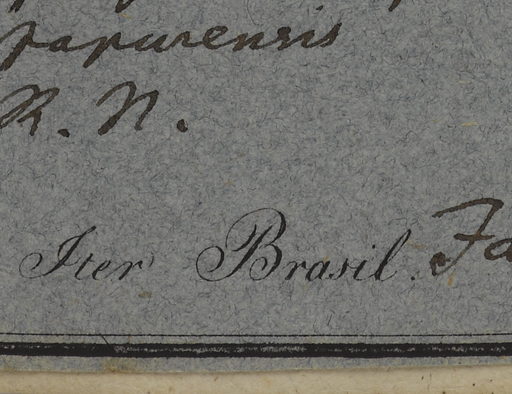 japurensis
R. N.
Iter Brasil.